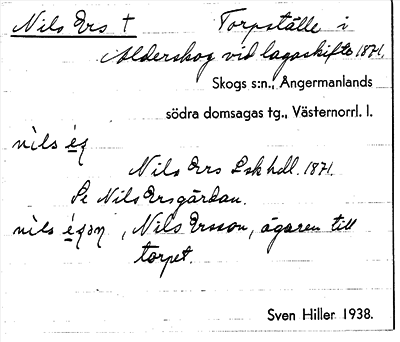 Nils Ers † Torpställe i
Alderskog vid lagaskifte 1871.
Skogs s:n., Ångermanlands
södra domsagas tg., Västernorrl. l.
nils
Nils Ers Lsk hdl. 1871.
Se Nils Ersgårdan.
nils , Nils Ersson, ägaren till
torpet.
Sven Hiller 1938.